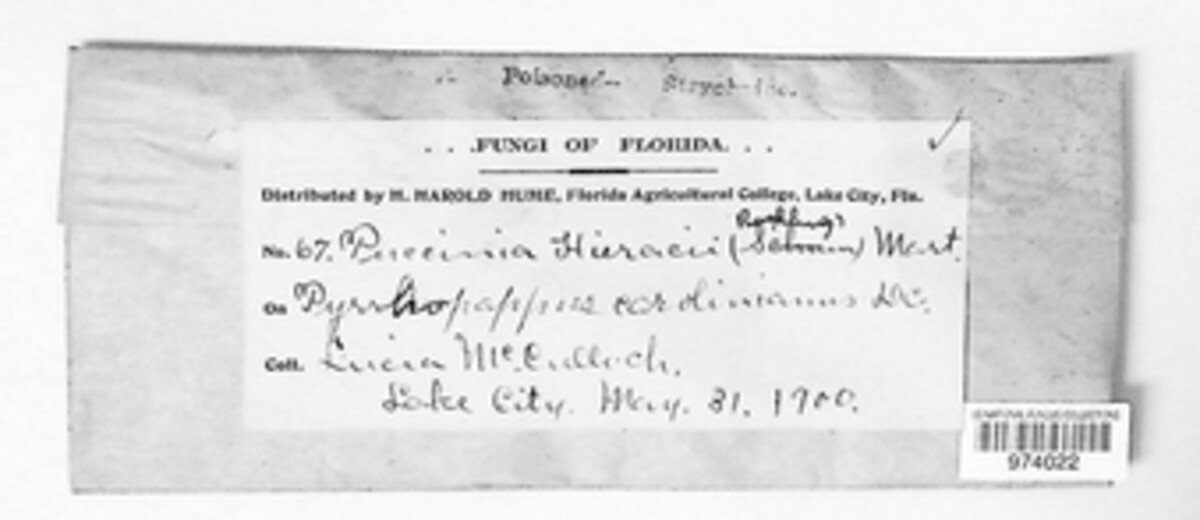 Poisoned
. . .FUNGI OF FLORIDA. . .
Distributed by H. HAROLD HUME, Florida Agricultural College, Lake City, Fla.
No. 67. Puccinia Hieracii ( ) Mart.
On Pyrrhopappus carolinianus DC.
Coll. Lucia McCulloch.
Lake City. May. 31. 1900.
974022